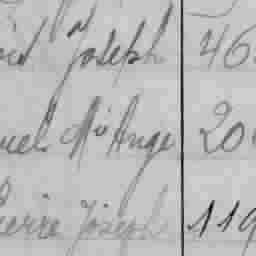 Joseph 46
uel Mie Ange 20
Pierre Joseph 119